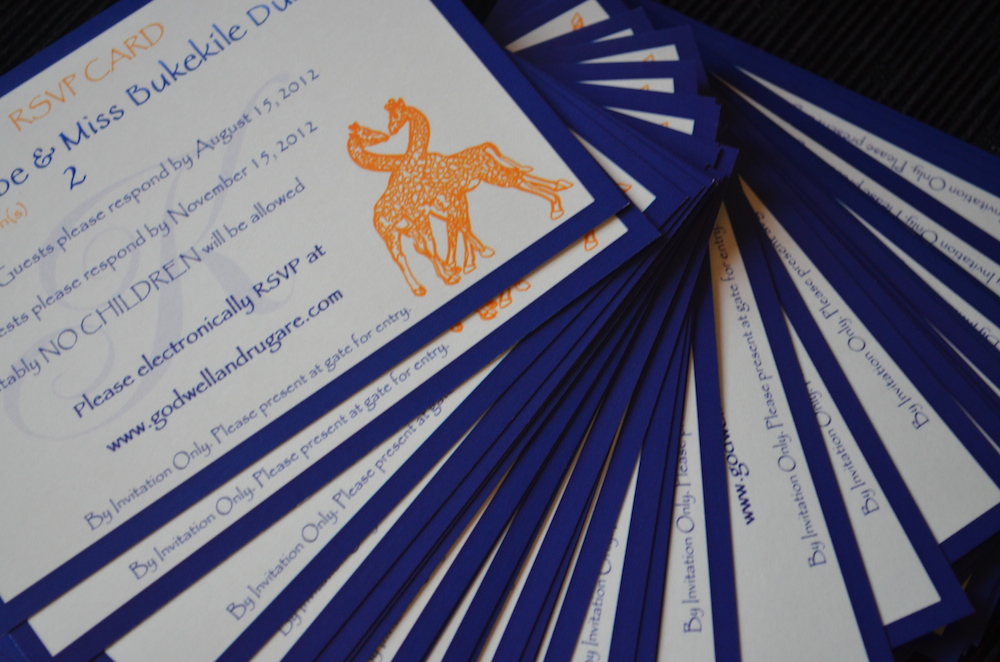 RSVP CARD
& Miss Bukekile
2
Guests please respond by August 15, 2012
please respond by November 15, 2012
NO CHILDREN will be allowed
Please electronically RSVP at
www.godwellandrugare.com
By Invitation Only. Please present at gate for entry.
By Invitation Only. Please present at gate for entry.
By Invitation Only. Please present at
By Invitation
By Invitation Only. Please
www.godwe
By Invitation Only. Please present at gate for entry
By Invitation Only
By Invitation Only. Please present at
By Invitation Only. Please present
Invitation Only. Please
Invitation Only. Please present